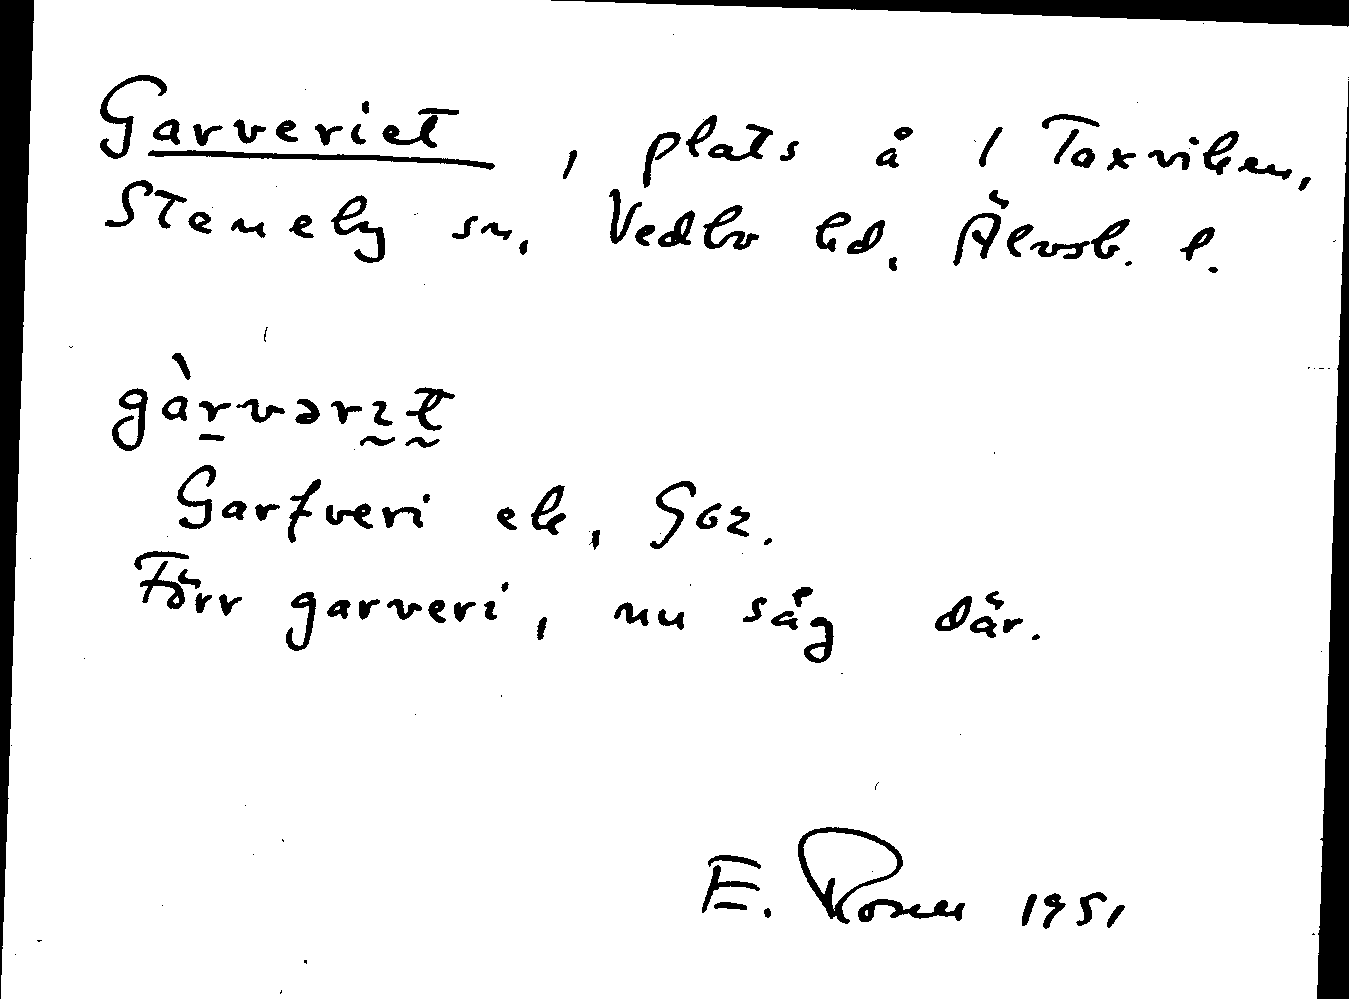 Garveriet, plats å 1 Taxviken,
Steneby sn, Vedbo hd, Älvsb. l.
gàrvərɪt
Garfveri ek, Goz.
Förr garveri, nu såg där.
E. Rosell 1951